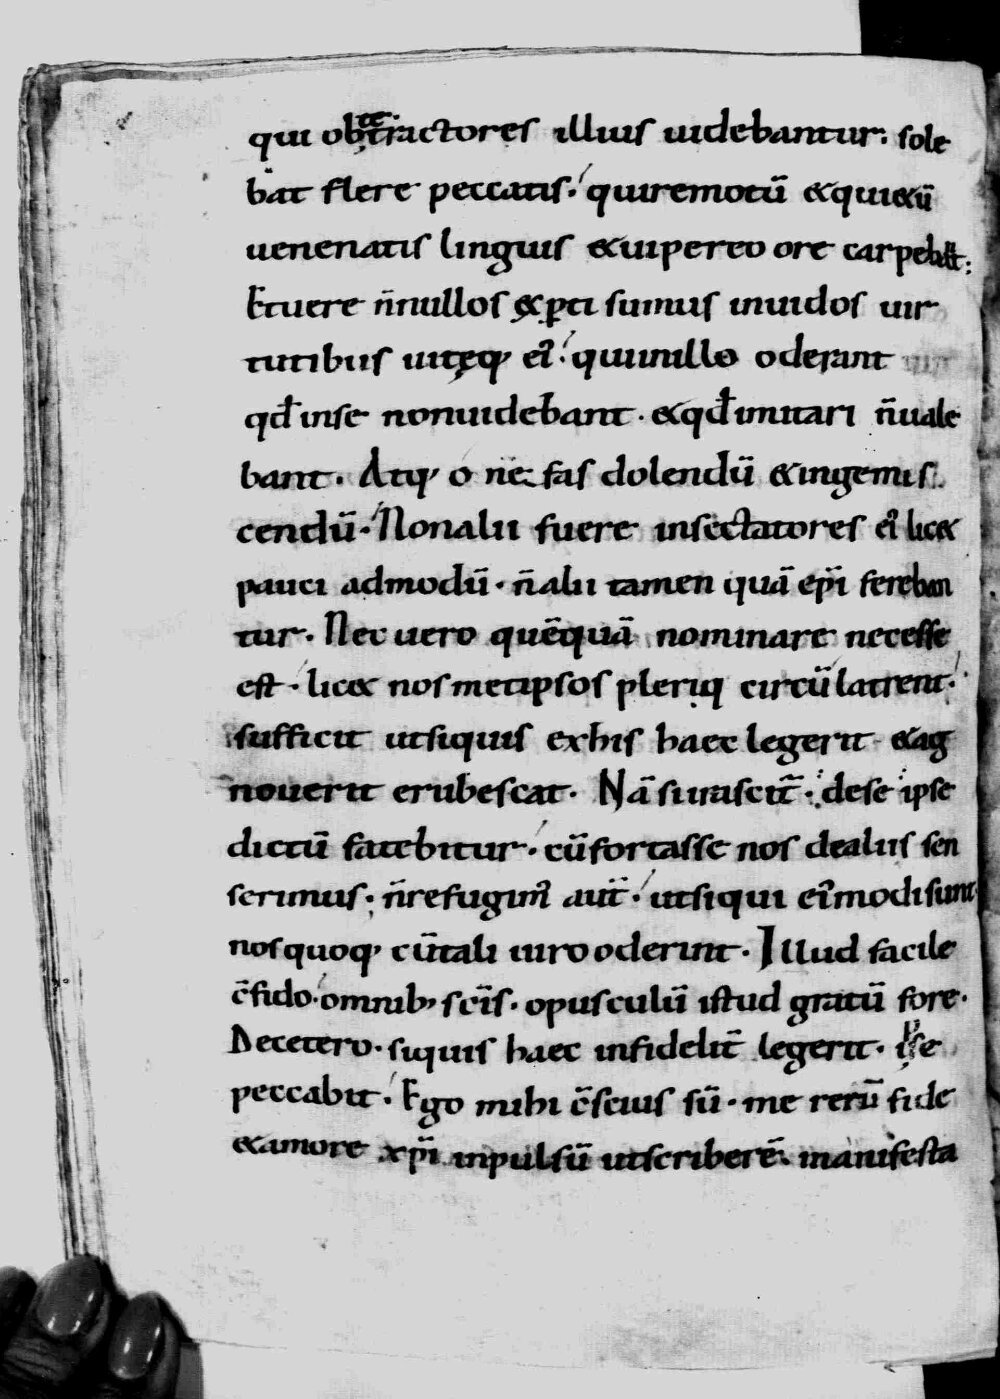 qui obtractores illius uidebantur. sole
bat flere peccatis. qui remotū & quietū
uenenatis linguis & uipereo ore carpebant;
Et uere n̄nullos exꝑti sumus inuidos uir
tutibus uitęq; ei᾽. qui in illo oderant
qđ in se non uidebant. & qđ imitari n̄ uale
bant. Atq; o nefas dolendū & ingemis
cendū. Non alii fuere insectatores ei᾽ lic&
pauci admodū. n̄ alii tamen quā ep̄i fereban
tur. Nec uero quēquā nominare necesse
est. lic& nosmetipsos pleriq; circūlatrent.
sufficit ut siquis ex his haec legerit & ag
nouerit erubescat. Nā si irascit̄. de se ipse
dictū fatebitur. cū fortasse nos de aliis sen
serimus. n̄ refugim᾽ aut̄. ut si qui ei᾽modi sunt.
nos quoq; cū tali uiro oderint. Illud facile
c̄fido. omnib; sc̄is. opusculū istud gratū fore.
De cetero. siquis haec infidelit̄ legerit. ipse
peccabit. Ego mihi c̄scius sū. me rerū fide
& amore xp̄i inpulsū ut scriberē. manifesta